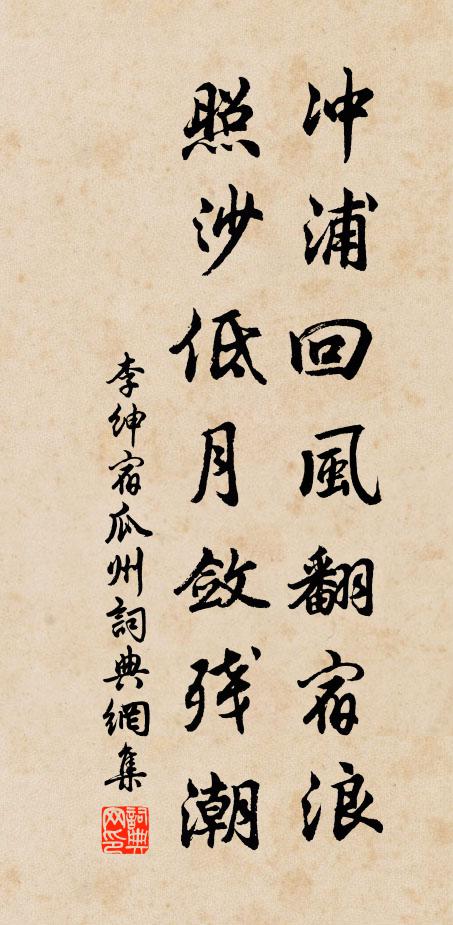 冲浦回風翻宿浪
照沙低月斂残潮
李紳宿瓜州詞典網集
詞典网印